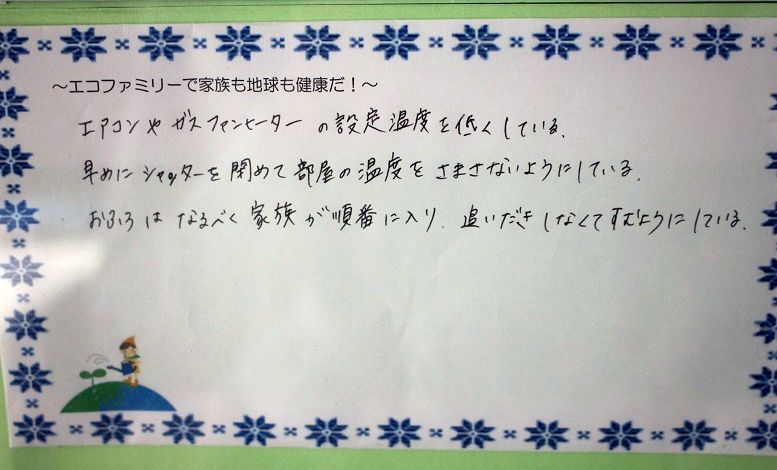 ～エコファミリーで家族も地球も健康だ！～
エアコンやガスファンヒーターの設定温度を低くしている。
早めにシャッターを閉めて部屋の温度をさまさないようにしている。
おふろはなるべく家族が順番に入り、追いだきしなくてすむようにしている。